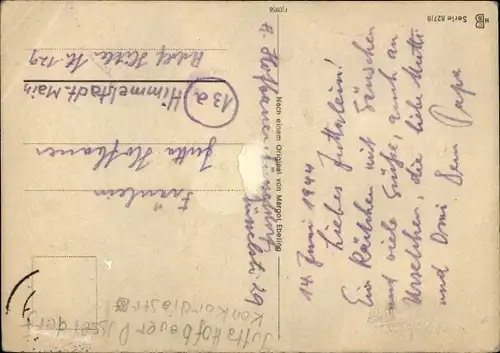 14. Juni 1944
Liebes Juttalein!
Ein Kätzchen mit Gänschen
und viele Grüße, auch an
Urselchen, die liebe Mutti
und Omi Dein Papa
H. Hofbauer
29
Fräulein
Jutta Hofbauer
13a Himmelstadt Main
Adolf Hitler Str. 129
Nach einem Original von Margot Ebeling
Serie 827/8
Jutta Hofbauer Düsseldorf
Konkordiastr